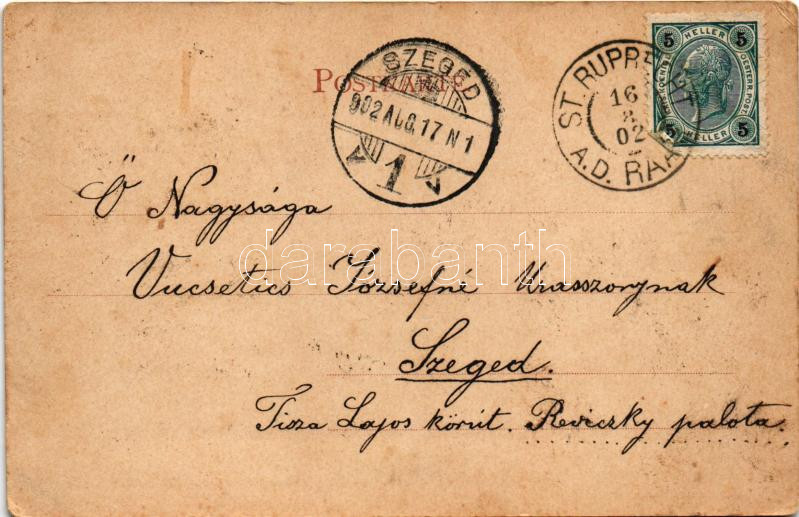 POSTKARTE
SZEGED
902 AUG. 17 N 1
1
ST. RUPRECHT
16
8
02
A.D. RAAB
5 HELLER 5
5 HELLER 5
OESTERR. POST
Ő Nagysága
Vucsetics Józsefné Urasszonynak
Szeged.
Tisza Lajos körút. Reviczky palota.
darabanth